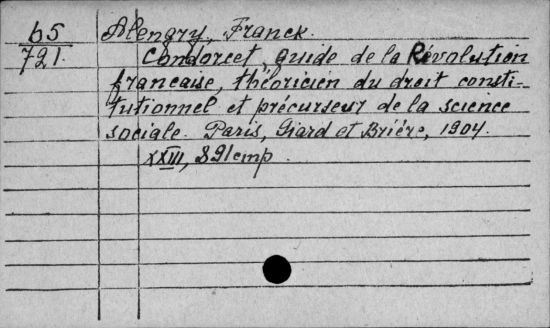 65
721.
Alengry, Franck.
Condorcet, guide de la Révolution
française, théoricien du droit consti-
tutionnel et précurseur de la science
sociale. Paris, Giard et Brière, 1904.
XXIII, 891 emp.